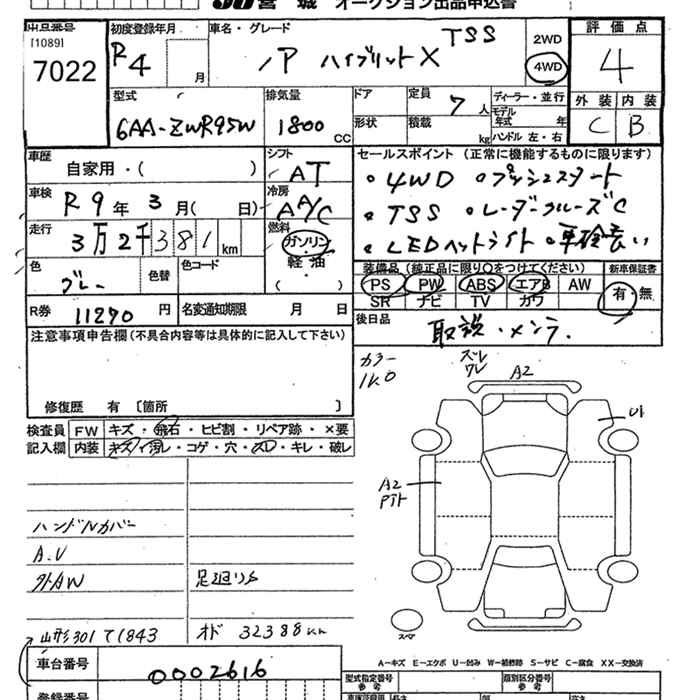 宮城 オークション出品申込書
出品番号
[1089]
7022
初度登録年月
R4 月
車名・グレード
ノア ハイブリット X TSS
2WD
4WD
評価点
4
外装 内装
C B
型式
6AA-ZWR95W
排気量
1800 CC
ドア
定員
7 人
形状
積載
kg
ディーラー・並行
モデル年式 年
ハンドル 左・右
車歴
自家用・( )
シフト
AT
車検
R9年 3月( 日)
冷房
AA/C
走行
3万2千381km
燃料
ガソリン
軽・油
( )
色
グレー
色替
色コード
R券
11290円
名変通知期限 月 日
セールスポイント(正常に機能するものに限ります)
・4WD ・プッシュスタート
・TSS ・レーダークルーズC
・LEDヘットライト ・車検長い
装備品(純正品に限り○をつけてください)
PS PW ABS エアB AW
SR ナビ TV カワ
新車保証書
有・無
後日品
取説・メンテ.
注意事項申告欄(不具合内容等は具体的に記入して下さい)
修復歴 有 〔箇所 〕
検査員記入欄
FW キズ・飛石・ヒビ割・リペア跡・×要
内装 キズ・汚れ・コゲ・穴・スレ・キレ・破レ
ハンドルカバー
A.V
外AW
足廻りサ
山形301 て1843
オド 32388km
カラー
1K0
ズレ
ワレ
A2
U1
A2
スペア
A-キズ E-エクボ U-凹み W-補修跡 S-サビ C-腐食 XX-交換済
車台番号
0002616
登録番号
型式指定番号
参考
類別区分番号
参考